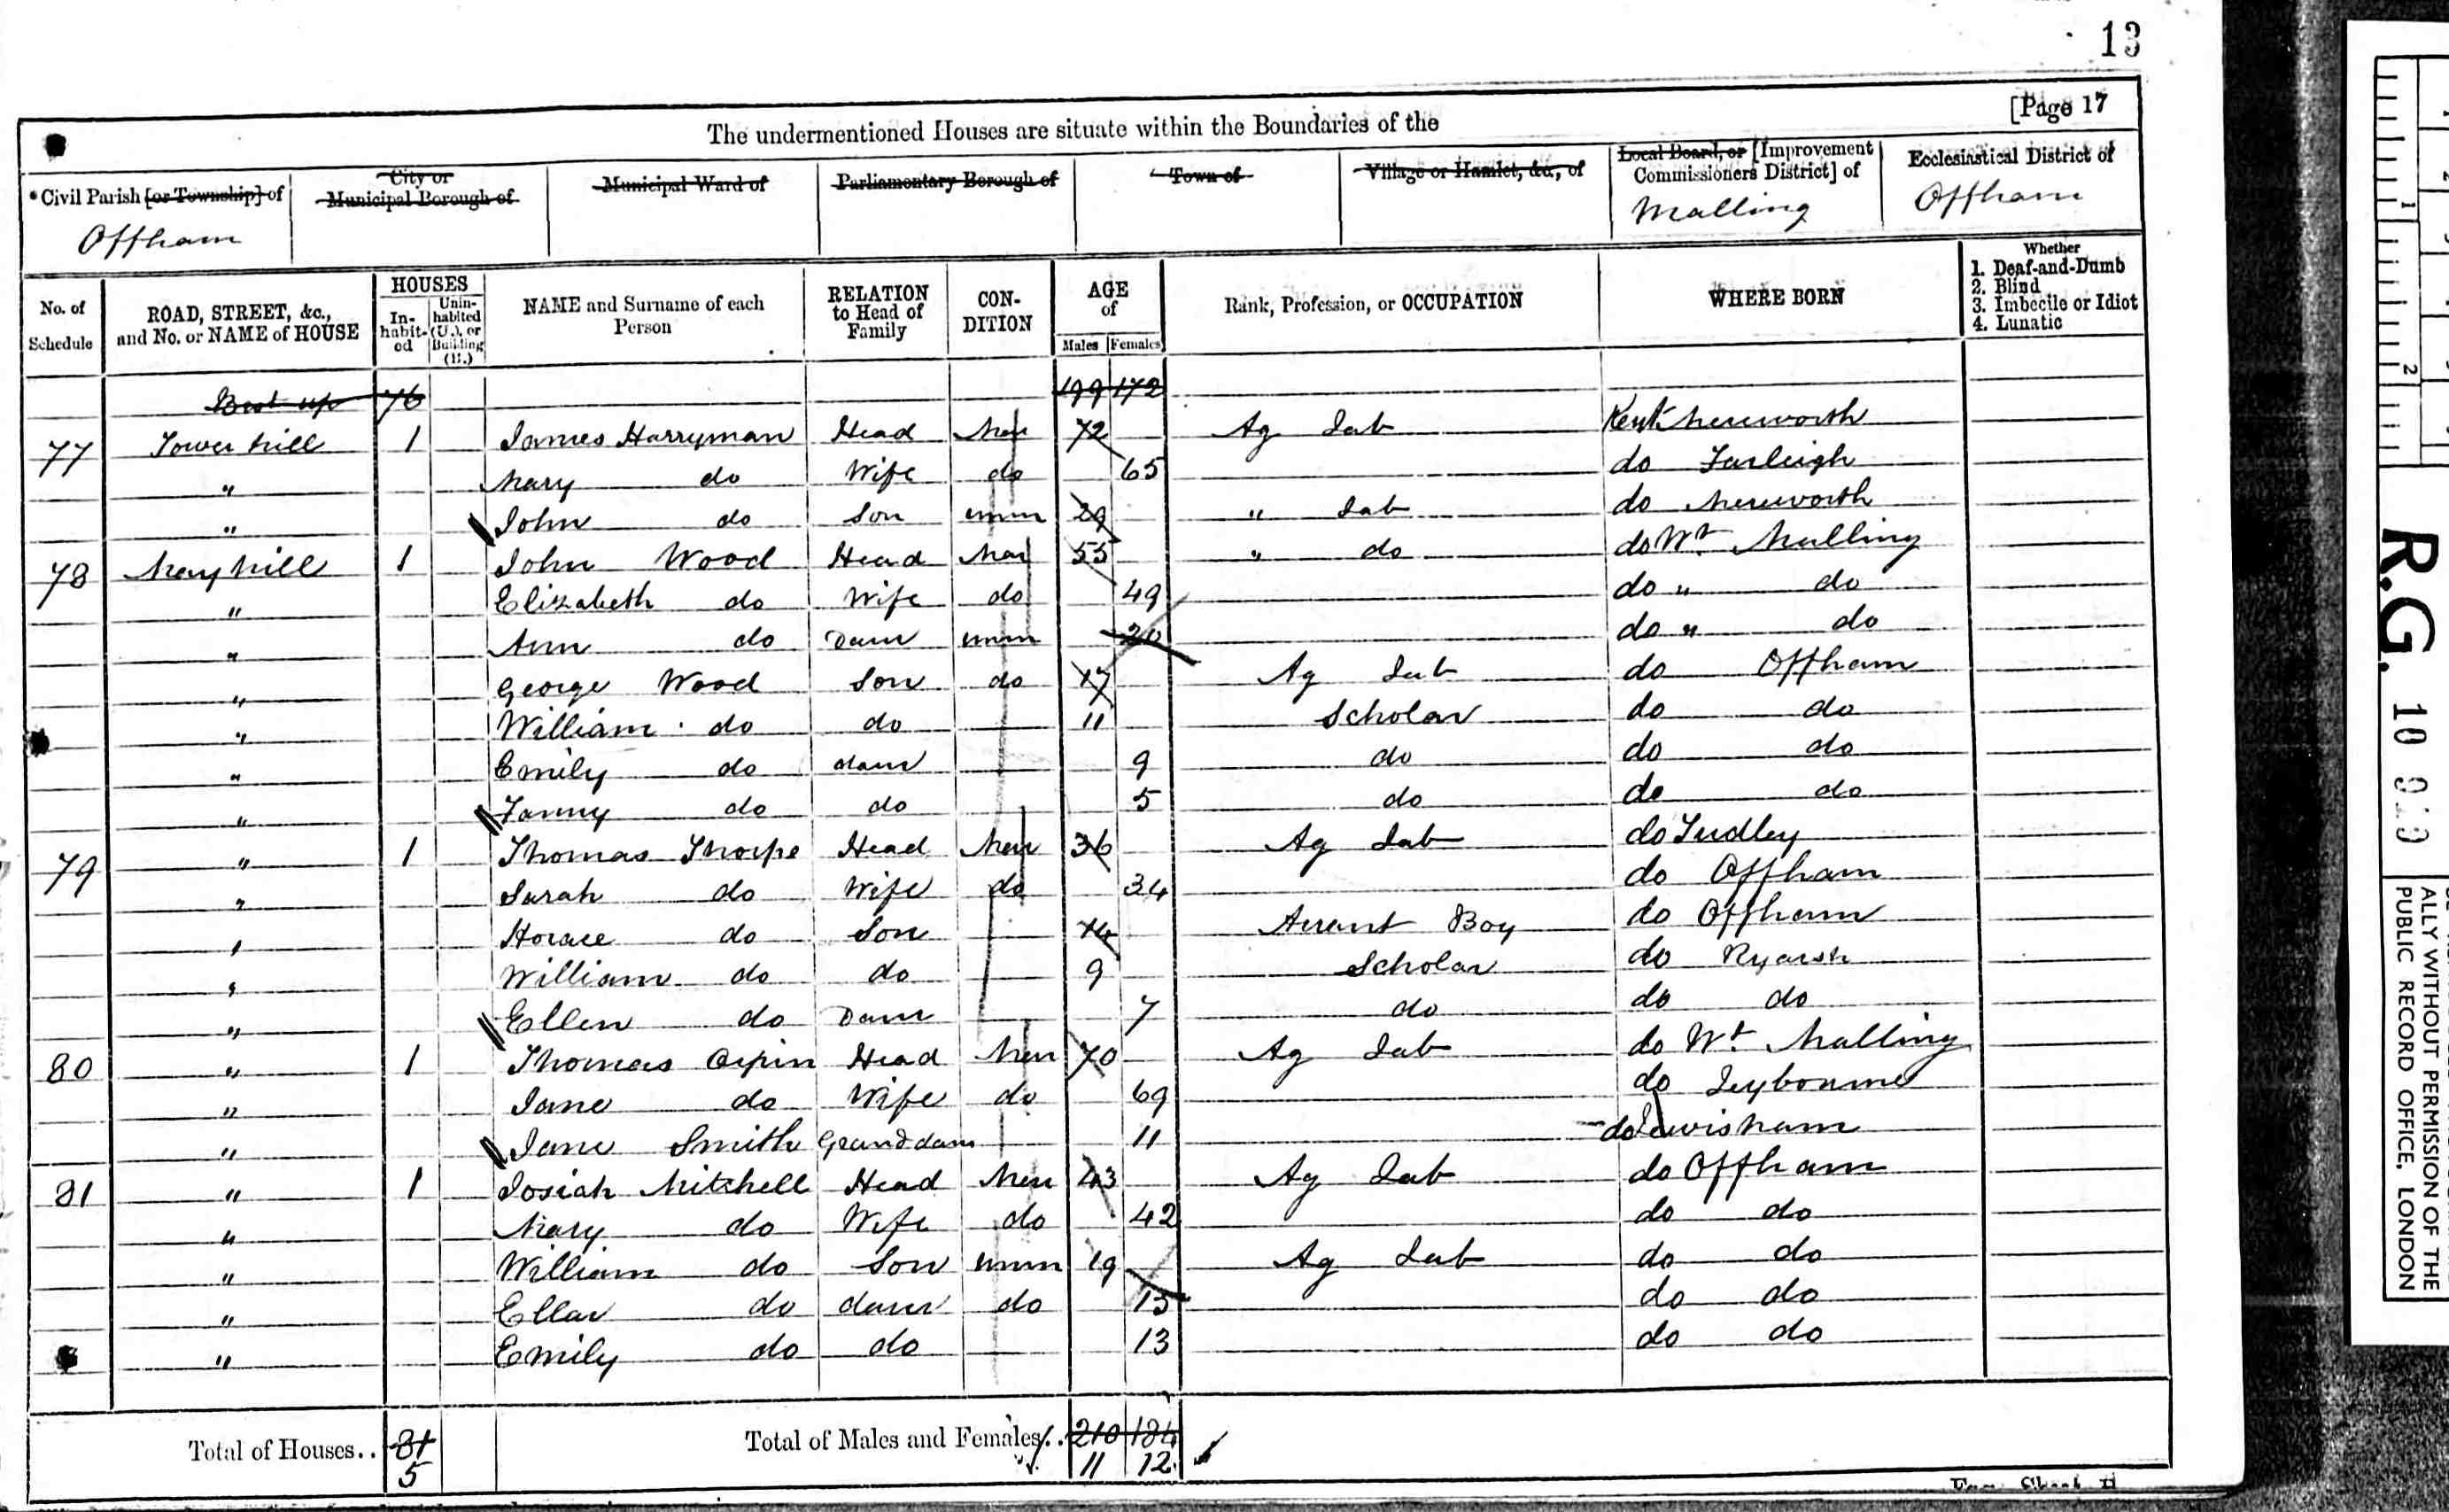 13
[Page 17
The undermentioned Houses are situate within the Boundaries of the
*Civil Parish [or Township] of
City or
Municipal Borough of
Municipal Ward of
Parliamentary Borough of
Town of
Village or Hamlet, &c., of
Local Board, or [Improvement
Commissioners District] of
Ecclesiastical District of
Offham
Malling
Offham
No. of
Schedule
ROAD, STREET, &c.,
and No. or NAME of HOUSE
HOUSES
In-
habit-
ed
Unin-
habited
(U.), or
Building
(B.)
NAME and Surname of each
Person
RELATION
to Head of
Family
CON-
DITION
AGE
of
Males
Females
Rank, Profession, or OCCUPATION
WHERE BORN
Whether
1. Deaf-and-Dumb
2. Blind
3. Imbecile or Idiot
4. Lunatic
76 199 172
77 Tower hill 1 James Harryman Head Mar 72 Ag Lab Kent Mereworth
" Mary do Wife do 65 do Farleigh
" John do Son unm 29 " Lab do Mereworth
78 May hill 1 John Wood Head Mar 55 " do do Wt. Malling
" Elizabeth do Wife do 49 do " do
" Ann do Daur unm 20 do " do
" George Wood Son do 17 Ag Lab do Offham
" William do do 11 Scholar do do
" Emily do daur 9 do do do
" Fanny do do 5 do do do
79 " 1 Thomas Thorpe Head Mar 36 Ag Lab do Tudley
" Sarah do Wife do 34 do Offham
" Horace do Son 14 Arrant Boy do Offham
" William do do 9 Scholar do Ryarsh
" Ellen do Daur 7 do do do
80 " 1 Thomas Orpin Head Mar 70 Ag Lab do Wt. Malling
" Jane do Wife do 69 do Leybourne
" Jane Smith Grand daur 11 do Lewisham
81 " 1 Josiah Mitchell Head Mar 43 Ag Lab do Offham
" Mary do Wife do 42 do do
" William do Son unm 19 Ag Lab do do
" Ellar do daur do 15 do do
" Emily do do 13 do do
Total of Houses.. 81
5
Total of Males and Females.. 210 184
11 12
R.G. 10
ALLY WITHOUT PERMISSION OF THE
PUBLIC RECORD OFFICE, LONDON
1
2